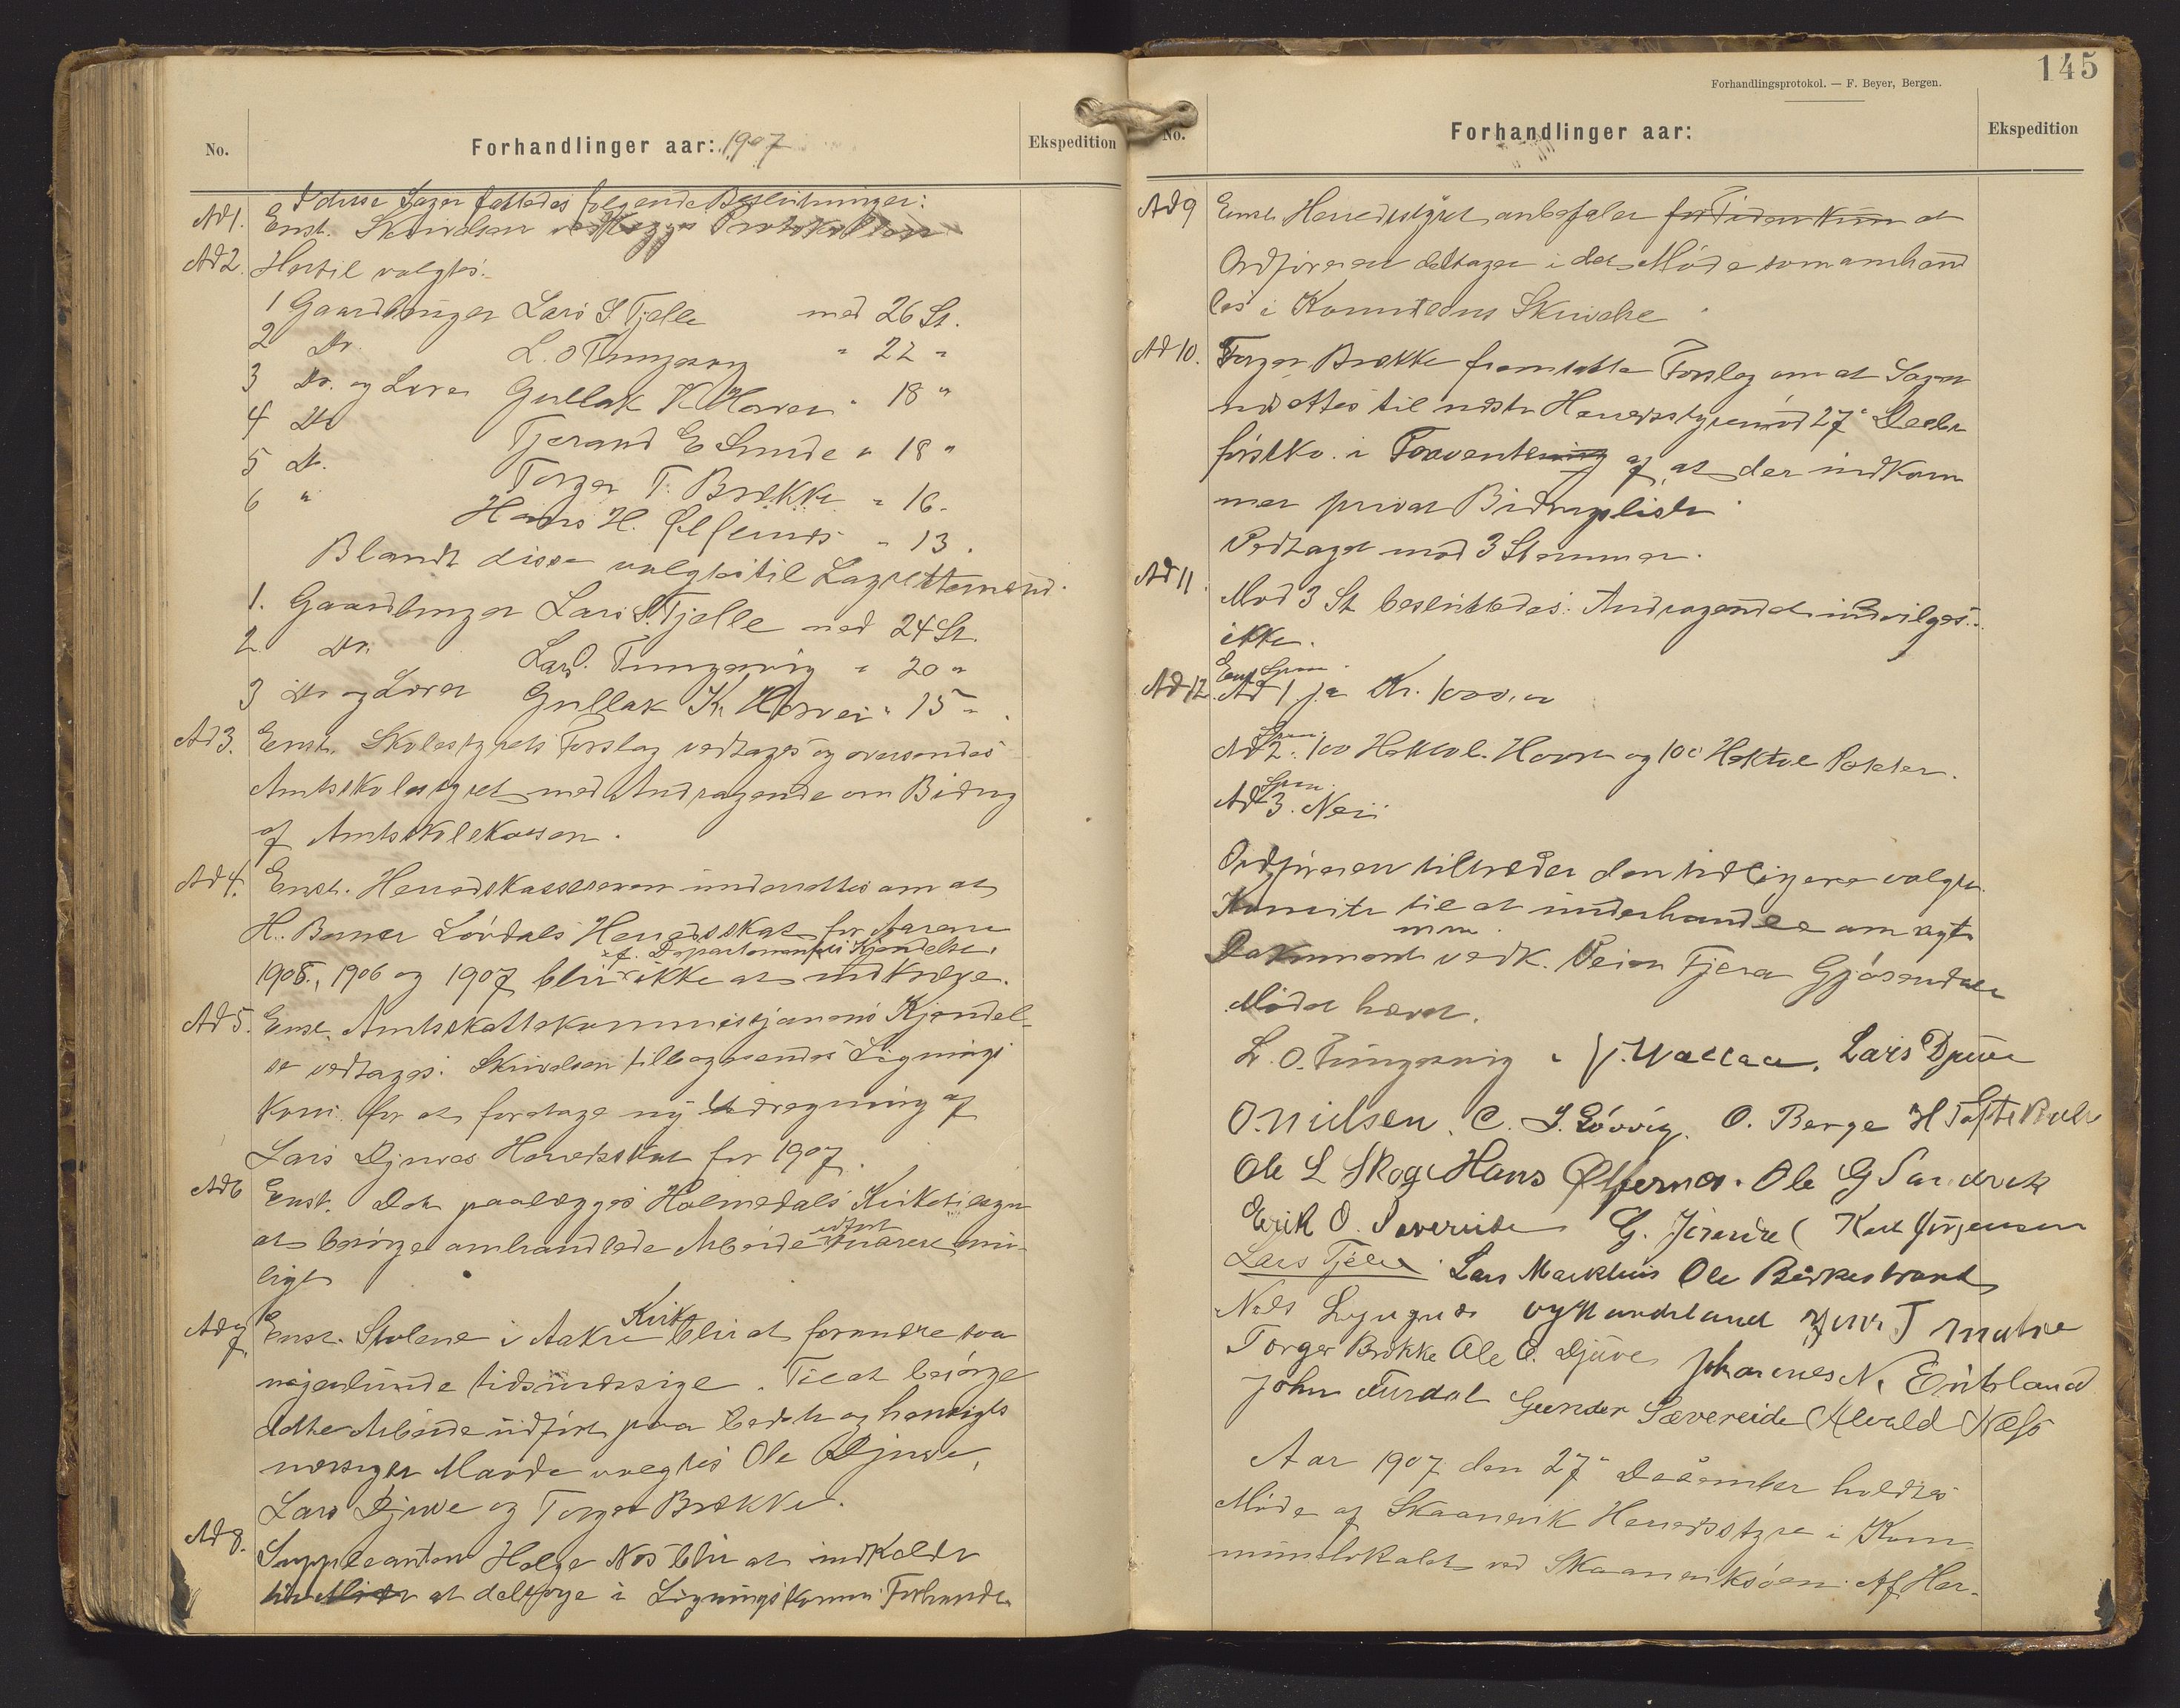 No.
Forhandlinger aar: 1907
Ekspedition
I disse Sager fattedes følgende Beslutninger:
Ad 1. Enst. Skrivelsen vedlægges Protokollen
Ad 2. Hertil valgtes:
1 Gaardbruger Lars S. Tjelle med 26 St.
2 Do. L. O Tungesvig " 22 "
3 Do. og Lærer Gullak K Horvei " 18 "
4 Do Tjerand E Lunde " 18 "
5 Do. Torger T. Brekke " 16.
6 " Hans H. Ølfernes " 13.
Blandt disse valgtes til Lagrettemænd.
1. Gaardbruger Lars S. Tjelle med 24 St.
2 Do. Lars O. Tungesvig " 20 "
3 Do og Lærer Gullak K. Horvei " 15 "
Ad 3. Enst. Skolestyrets Forslag vedtages og oversendes
Amtsskolestyret med Andragende om Bidrag
af Amtsskolekassen.
Ad 4. Enst. Herredskassereren underrettes om at
H. Berner Lövdals Herredsskat for Aarene
cf. Departementets Kjendelse
1905, 1906 og 1907 blir ikke at indkræve.
Ad 5. Enst. Amtsskattekommissjonens Kjendel-
se vedtages. Skrivelsen tilbagesendes Lignings
kom. for at foretage ny Udregning af
Lars Djuves Herredsskat for 1907.
Ad 6 Enst. Det paalægges Holmedals Kirketilsyn
at besörge omhandlede Arbeide udført snarest mu-
ligt
Ad 7. Enst. Stolene i Aakre Kirke blir at forandre saa
nogenlunde tidsmæssige. Til at besörge
dette Arbeide udført paa bedste og hensigts
mæssigste Maade valgtes Ole Djuve,
Lars Djuve og Torger Brekke.
Ad 8. Suppleanten Helge Næs blir at indkalde
til at deltage i Ligningskomm. Forhandl.
145
Forhandlingsprotokol. — F. Beyer, Bergen.
No.
Forhandlinger aar:
Ekspedition
Ad 9 Enst. Herredsstyret anbefaler for Tiden kun at
Ordføreren deltager i det Möde som omhand
les i Komiteens Skrivelse.
Ad 10. Torger Brekke fremsatte Forslag om at Sagen
udsættes til næste Herredsstyremöd 27de Decbr
förstko. i Forventning af, at der indkom
mer privat Bidragsliste.
Vedtaget mod 3 Stemmer.
Ad 11. Mod 3 St. besluttedes: Andragendet indvilges
ikke.
Ad 12. Enst. Spm.
Ad 1 ja Kr. 1000,00
Spm.
Ad 2. 100 Hektol. Havre og 100 Hektol Poteter.
Spm.
Ad 3. Nei
Ordføreren tiltræder den tidligere valgte
Komite til at underhandle om nyt
mm.
Dokument vedk. Veien Fjæra Gjösendalen
Mödet hævet.
L. O. Tungesvig. J. Wallace. Lars Djuve
O. Nielsen. C. J. Lövvig. O. Berge H Toftekalv
Ole L Skoge Hans Ølfernes. Ole G Sandvik
Erik O. Sævereide G. Jërende Karl Jørgensen
Lars Tjelle Lars Markhus Ole Birkestrand
Nils Lyngnes Matre
Torger Brekke Ole O. Djuve Johannes N. Eritsland
John Furdal Gunder Sævereide Alvald Næss
Aar 1907 den 27de December holdtes
Möde af Skaanevik Herredsstyre i Kom-
munelokalet ved Skaaneviksöen. Af Her-